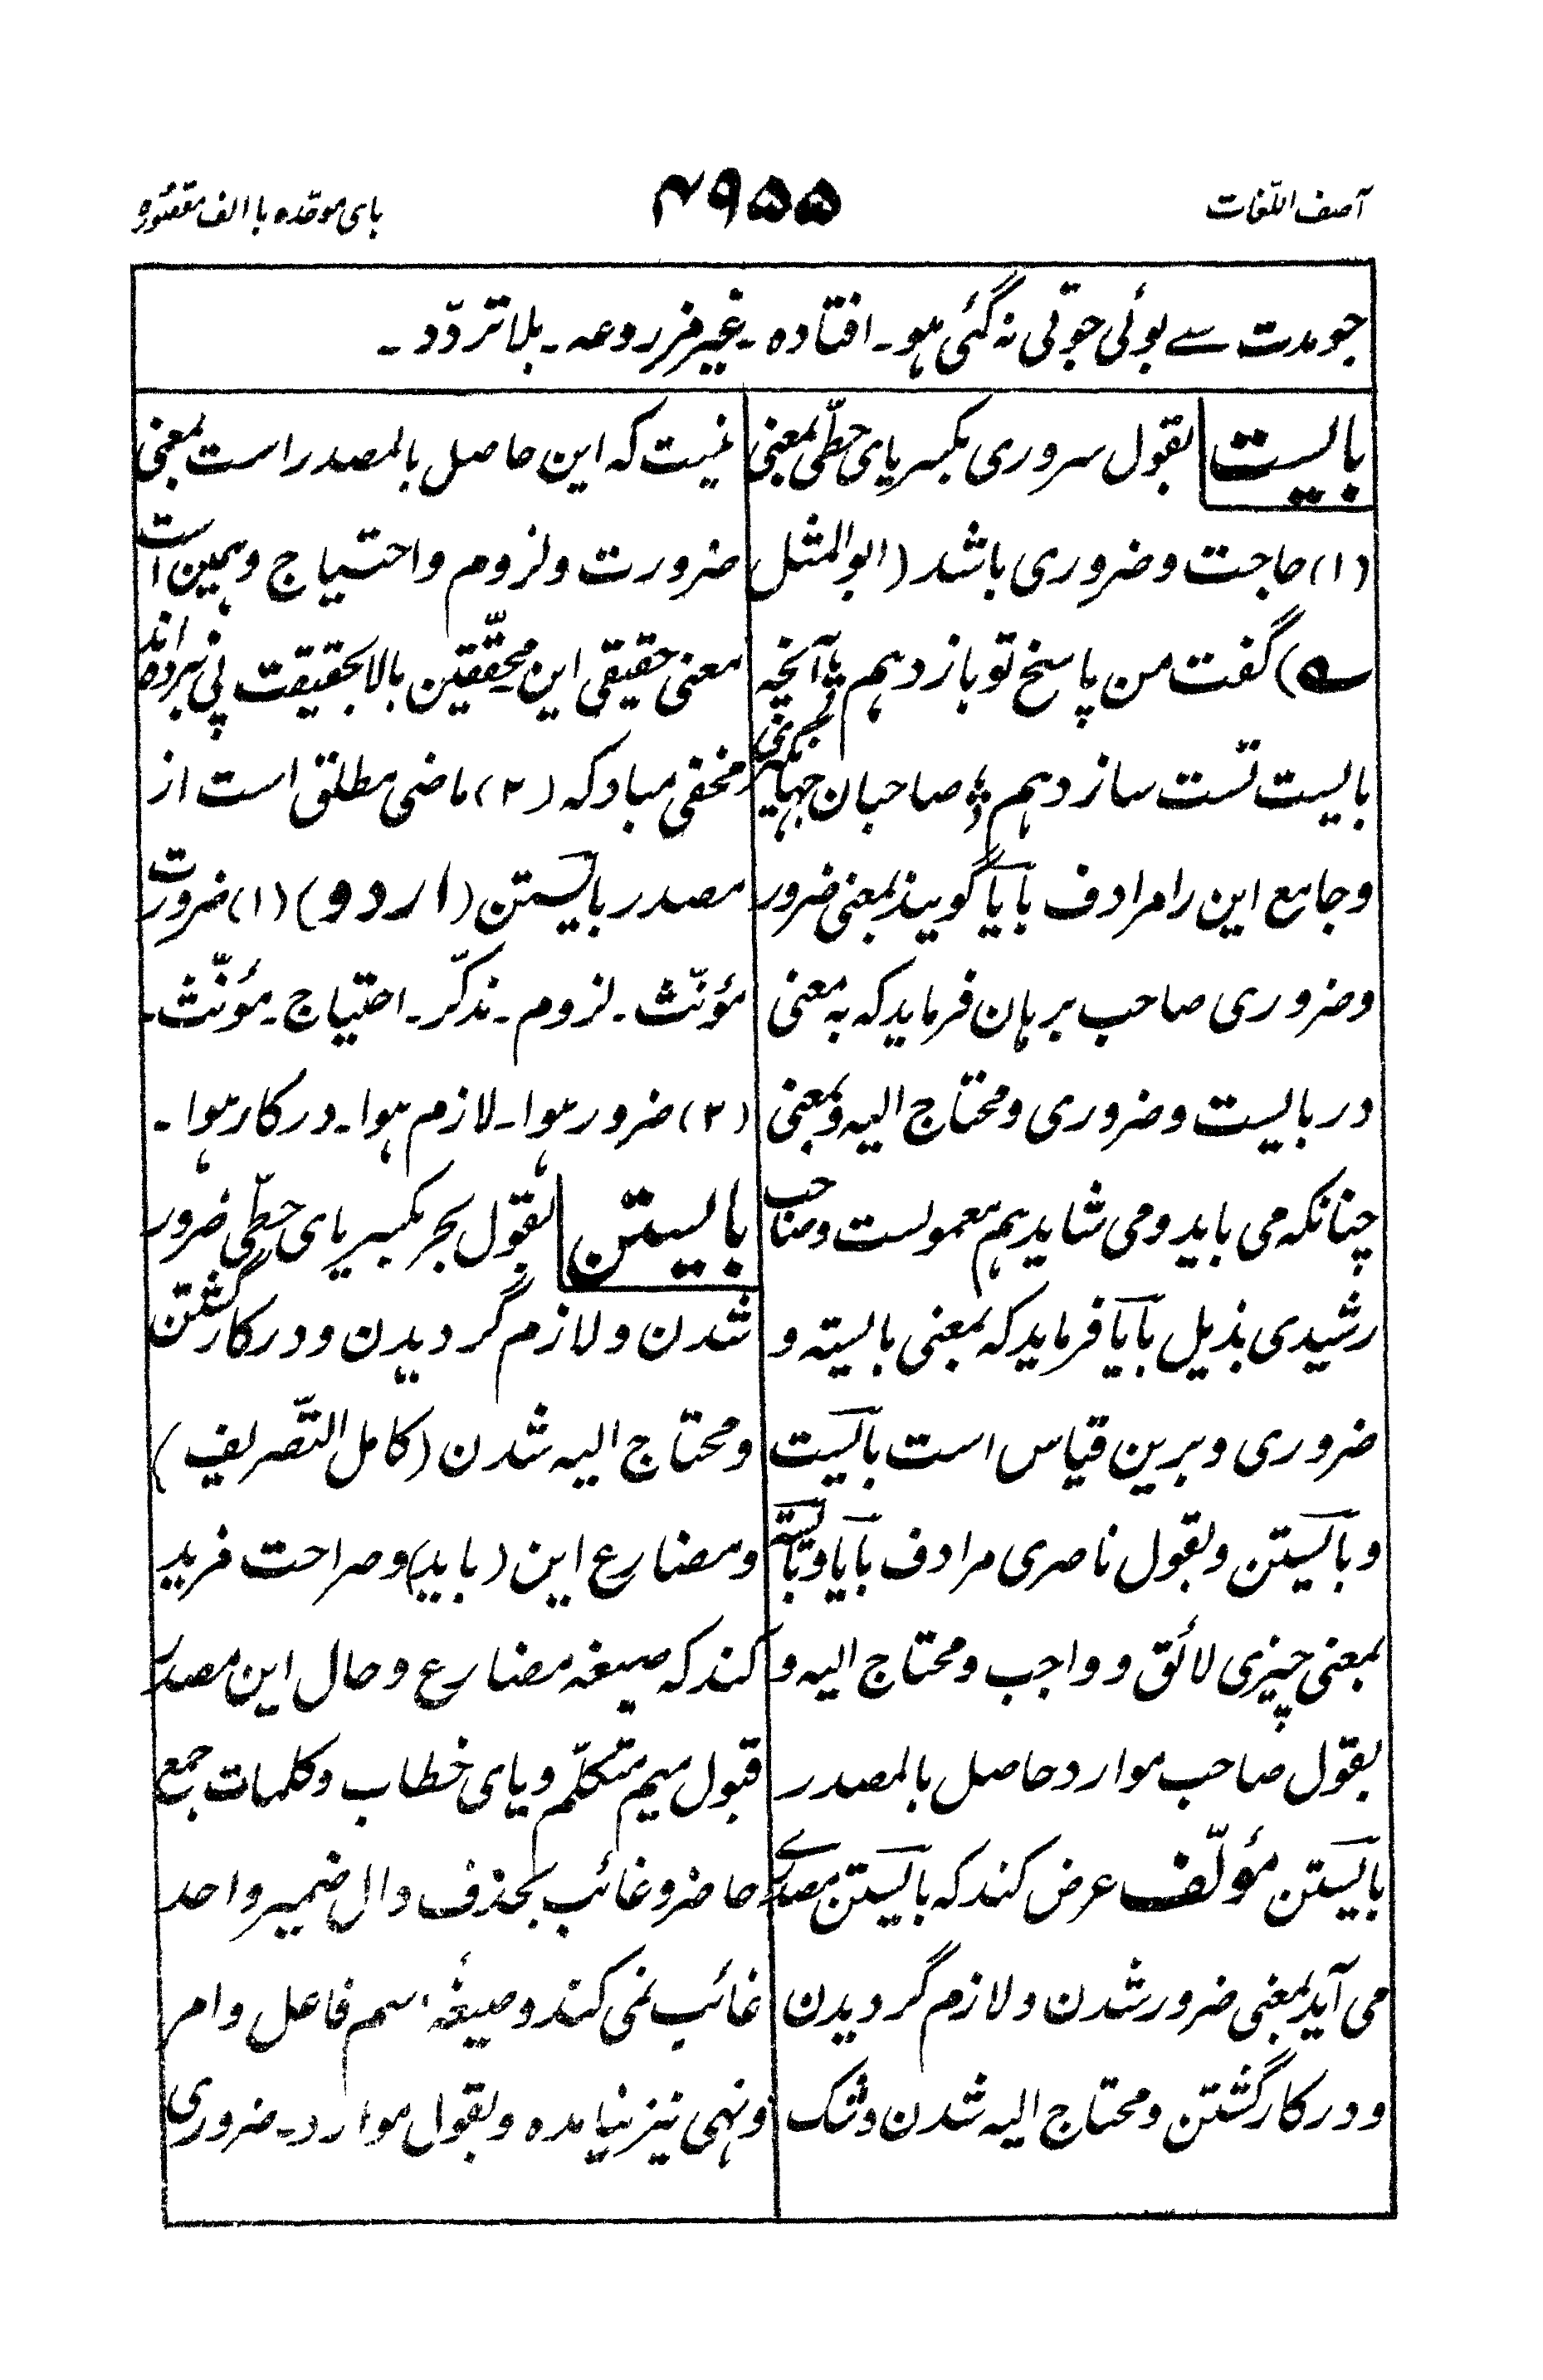 آصف اللّغات
۴۹۵۵
بای موحّده با الف مقصُوره
جو مدت سے بوئی جوتی نہ گئی ہو۔ افتادہ۔ غیر مزروعہ۔ بلا تردّد۔
بالیست بقول سروری بکسر یای حطّی بمعنی
(۱) حاجت و ضروری باشد (ابو المثل
ے) گفت من پاسخ تو باز دہم ہا آنچہ
بالیست تست ساز دہم ؛ صاحبان جہانگیری
و جامع این را مرادف بایا گویند بمعنی ضرور
و ضروری صاحب برہان فرماید کہ بہ معنی
دربالیست و ضروری و محتاج الیہ و بمعنی
چنانکہ می باید و می شاید ہم معمولست و صاحب
رشیدی بذیل بایا فرماید کہ بمعنی بالیستہ و
ضروری و برین قیاس است بالیست
و بالیستن و بقول ناصری مرادف بایا و بالیستہ
بمعنی چیزی لائق و واجب و محتاج الیہ و
بقول صاحب موارد حاصل بالمصدر
بالیستن مؤلّف عرض کند کہ بالیستن مصدرے
می آید بمعنی ضرور شدن و لازم گردیدن
و درکار گشتن و محتاج الیہ شدن و شک
نیست کہ این حاصل بالمصدر است بمعنی
ضرورت و لزوم و احتیاج و ہمین است
معنی حقیقی این محقّقین بالا بحقیقت پی نبردہ اند
مخفی مباد کہ (۲) ماضی مطلق است از
مصدر بالیستن (اردو) (۱) ضرورت
مؤنّث۔ لزوم۔ مذکّر۔ احتیاج۔ مؤنّث۔
(۲) ضرور ہوا۔ لازم ہوا۔ درکار ہوا۔
بالیستن بقول بحر بکسر یای حطّی ضرور
شدن و لازم گردیدن و درکار گشتن
و محتاج الیہ شدن (کامل التّصریف)
و مضارع این (باید) و صراحت مزید
کند کہ صیغہ مضارع و حال این مصدر
قبول میم متکلّم و یای خطاب و کلمات جمع
حاضر و غائب بحذف دال ضمیر واحد
غائب نمی کند و صیغۂ اسم فاعل و امر
و نہی نیز نیامدہ و بقول موارد۔ ضروری